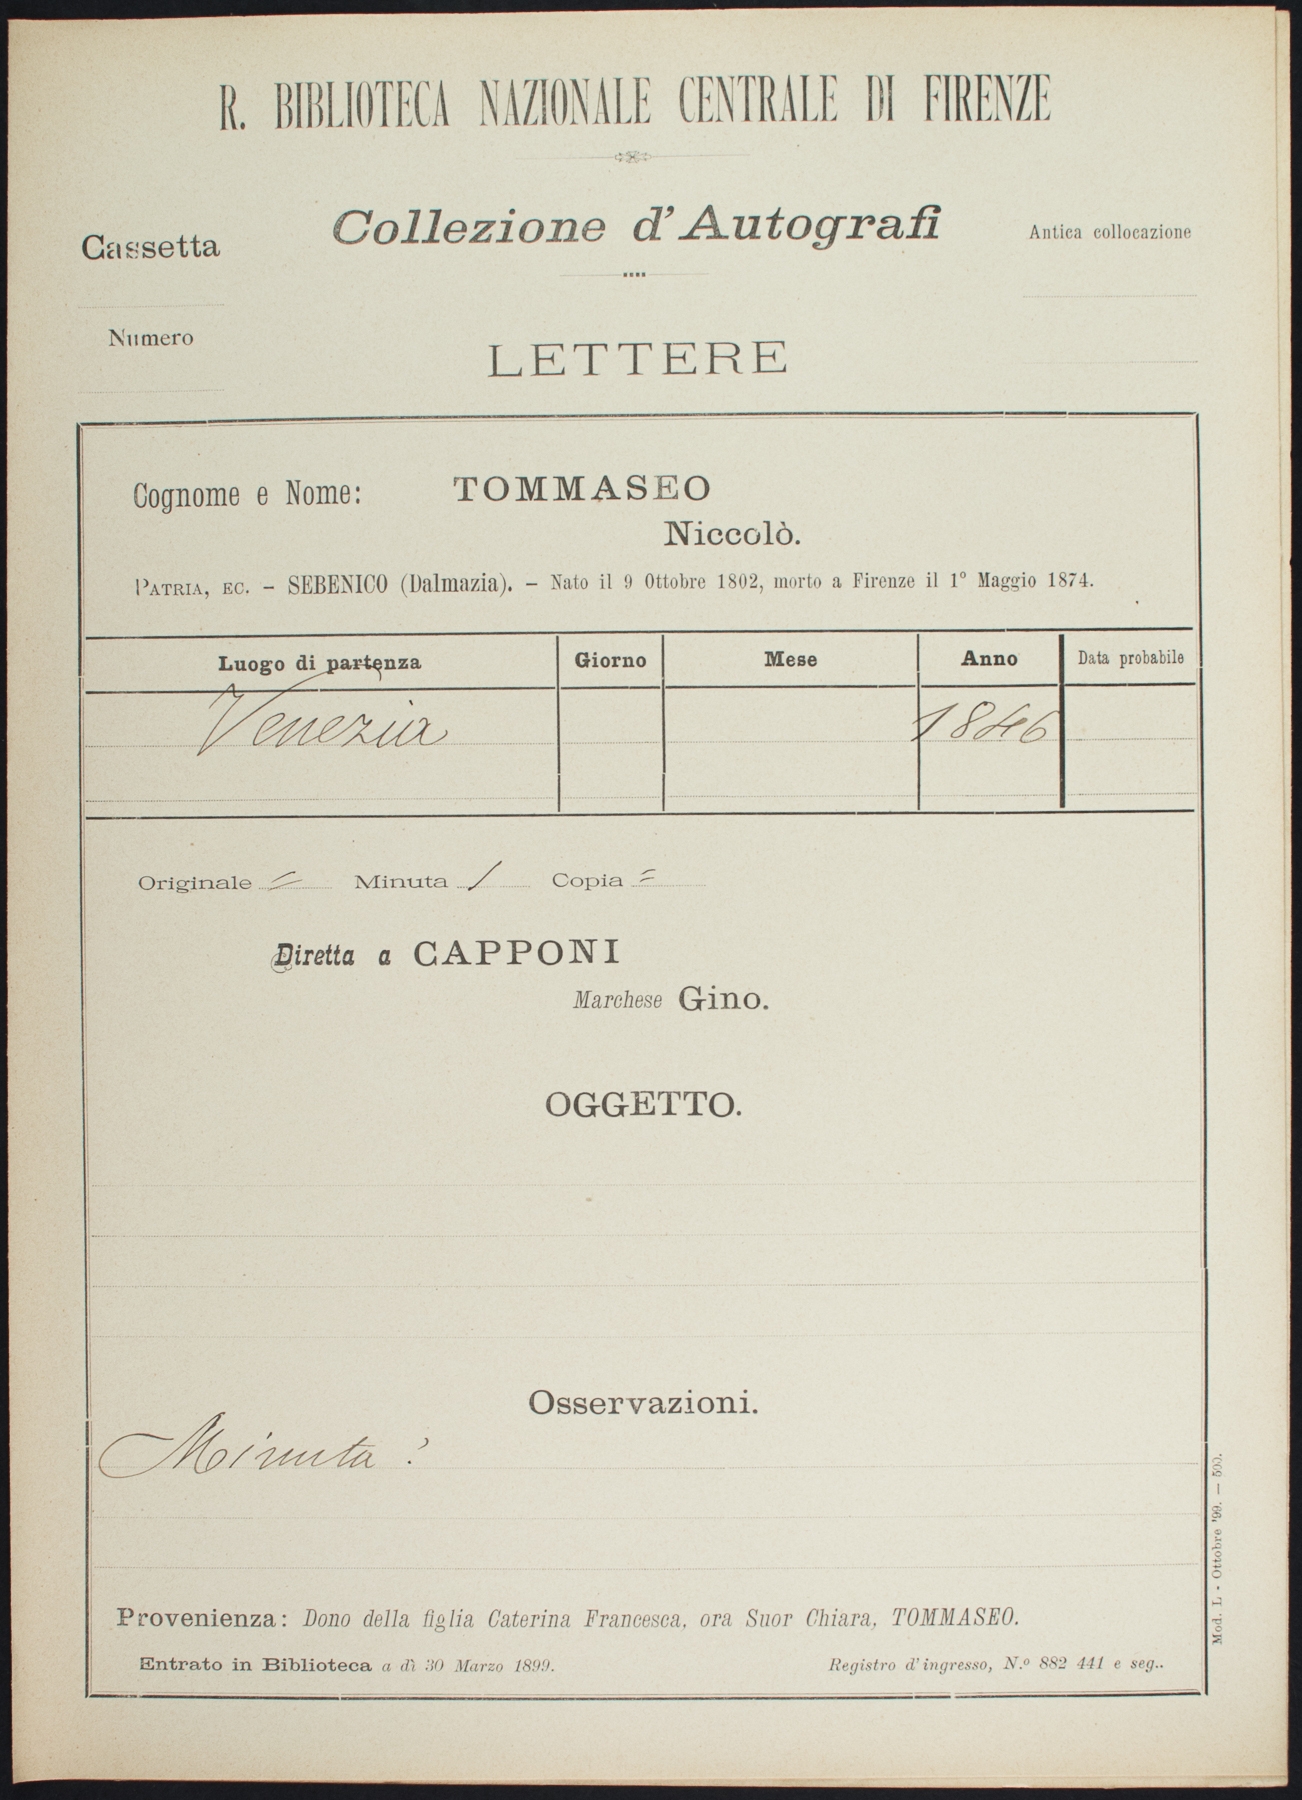 R. BIBLIOTECA NAZIONALE CENTRALE DI FIRENZE
Collezione d'Autografi
Cassetta
Antica collocazione
Numero
LETTERE
Cognome e Nome: TOMMASEO
Niccolò.
PATRIA, EC. – SEBENICO (Dalmazia). – Nato il 9 Ottobre 1802, morto a Firenze il 1° Maggio 1874.
Luogo di partenza Giorno Mese Anno Data probabile
Venezia 1846
Originale = Minuta / Copia =
Diretta a CAPPONI
Marchese Gino.
OGGETTO.
Osservazioni.
Minuta?
Provenienza: Dono della figlia Caterina Francesca, ora Suor Chiara, TOMMASEO.
Entrato in Biblioteca a dì 30 Marzo 1899. Registro d'ingresso, N.º 882 441 e seg..
Mod. L - Ottobre '99. — 500.